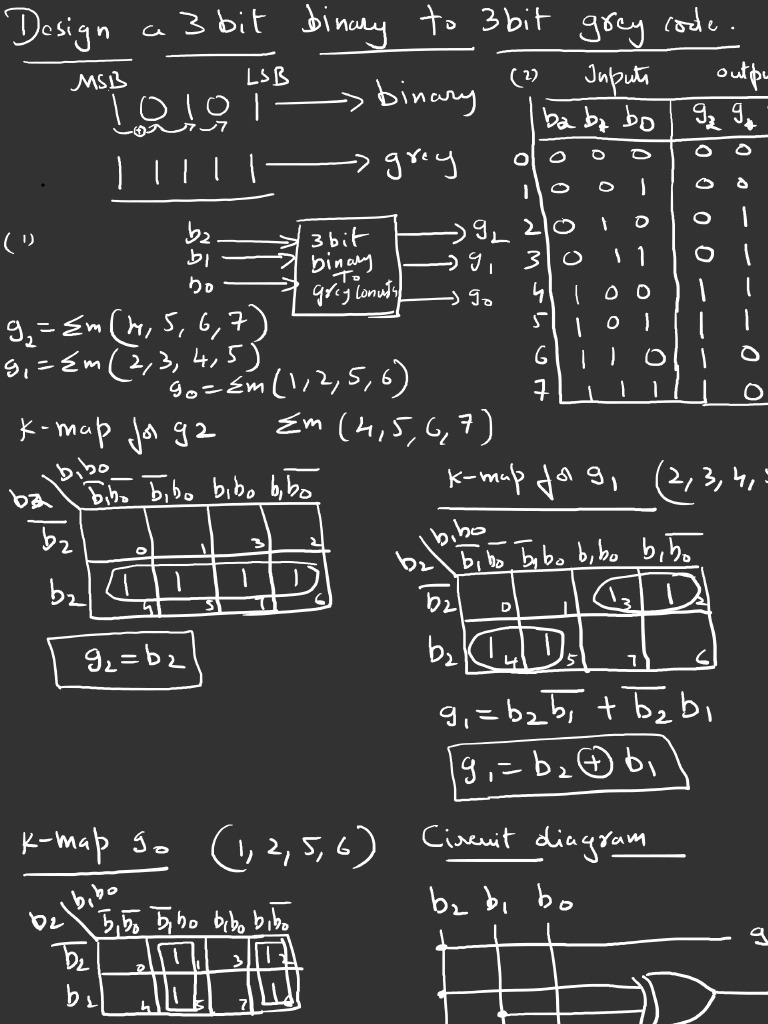 Design a 3 bit binary to 3bit grey code.
MSB LSB
1 0 1 0 1 → binary
1 1 1 1 1 → grey
(1)
b2 → 3bit → g2
b1 → binary → g1
b0 → To → g0
grey
g2 = Σm (4, 5, 6, 7)
g1 = Σm (2, 3, 4, 5)
g0 = Σm (1, 2, 5, 6)
(2) Inputs outpu
b2 b1 b0 g2 g1
0 0 0 0 0 0
1 0 0 1 0 0
2 0 1 0 0 1
3 0 1 1 0 1
4 1 0 0 1 1
5 1 0 1 1 1
6 1 1 0 1 0
7 1 1 1 1 0
K-map for g2 Σm (4, 5, 6, 7)
b1b0
b2 b̅1b̅0 b̅1b0 b1b0 b1b̅0
b̅2 0 1 3 2
b2 1 4 1 5 1 7 1 6
g2 = b2
K-map for g1 (2, 3, 4, 5
b1b0
b2 b̅1b̅0 b̅1b0 b1b0 b1b̅0
b̅2 0 1 1 3 1 2
b2 1 4 1 5 7 6
g1 = b2b̅1 + b̅2b1
g1 = b2 ⊕ b1
K-map g0 (1, 2, 5, 6)
b1b0
b2 b̅1b̅0 b̅1b0 b1b0 b1b̅0
b̅2 0 1 1 3 1 2
b2 4 1 5 7 1 6
Circuit diagram
b2 b1 b0
g